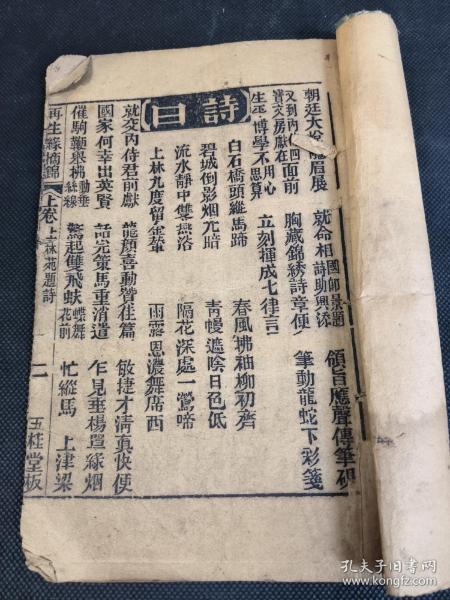 朝廷大悅龍眉展　就命相國師景題詩助興添　領旨應聲傳筆硯
又到內侍四面前寶文房獻在　胸藏錦綉詩章便　筆動龍蛇下彩箋
生平博學不用心思算　立刻揮成七律言
詩曰
白石橋頭縱馬蹄　春風拂袖柳初齊
碧城倒影烟光暗　青幔遮陰日色低
流水靜中雙燕浴　隔花深處一鶯啼
上林九度留金輦　雨露恩濃舞席西
就交內侍君前獻　龍顏喜動贊佳篇　敏捷才清真快便
國家何幸出英賢　話完策馬重消遣　乍見垂楊罩綠烟
催駒鞭舉拂動垂絲線　驚起雙飛蚨蝶舞花前　忙縱馬　上津梁
再生緣摘錦　上卷　上林苑題詩　二　五桂堂板
孔夫子旧书网
www.kongfz.com